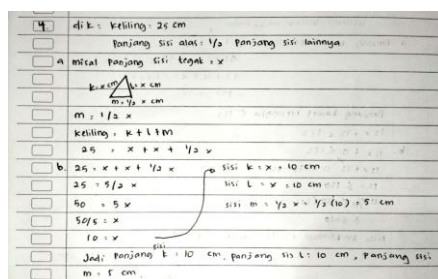 4 dik : keliling = 25 cm
Panjang sisi alas = 1/2 Panjang sisi lainnya
a misal Panjang sisi tegak = x
k = x cm L = x cm
m = 1/2 x cm
m = 1/2 x
keliling = k + l + m
25 = x + x + 1/2 x
b. 25 = x + x + 1/2 x
25 = 5/2 x
50 = 5x
50/5 = x
10 = x
sisi k = x = 10 cm
sisi L = x = 10 cm
sisi m = 1/2 x = 1/2 (10) = 5 cm
sisi
Jadi Panjang k = 10 cm, panjang sis L = 10 cm, Panjang sisi
m = 5 cm